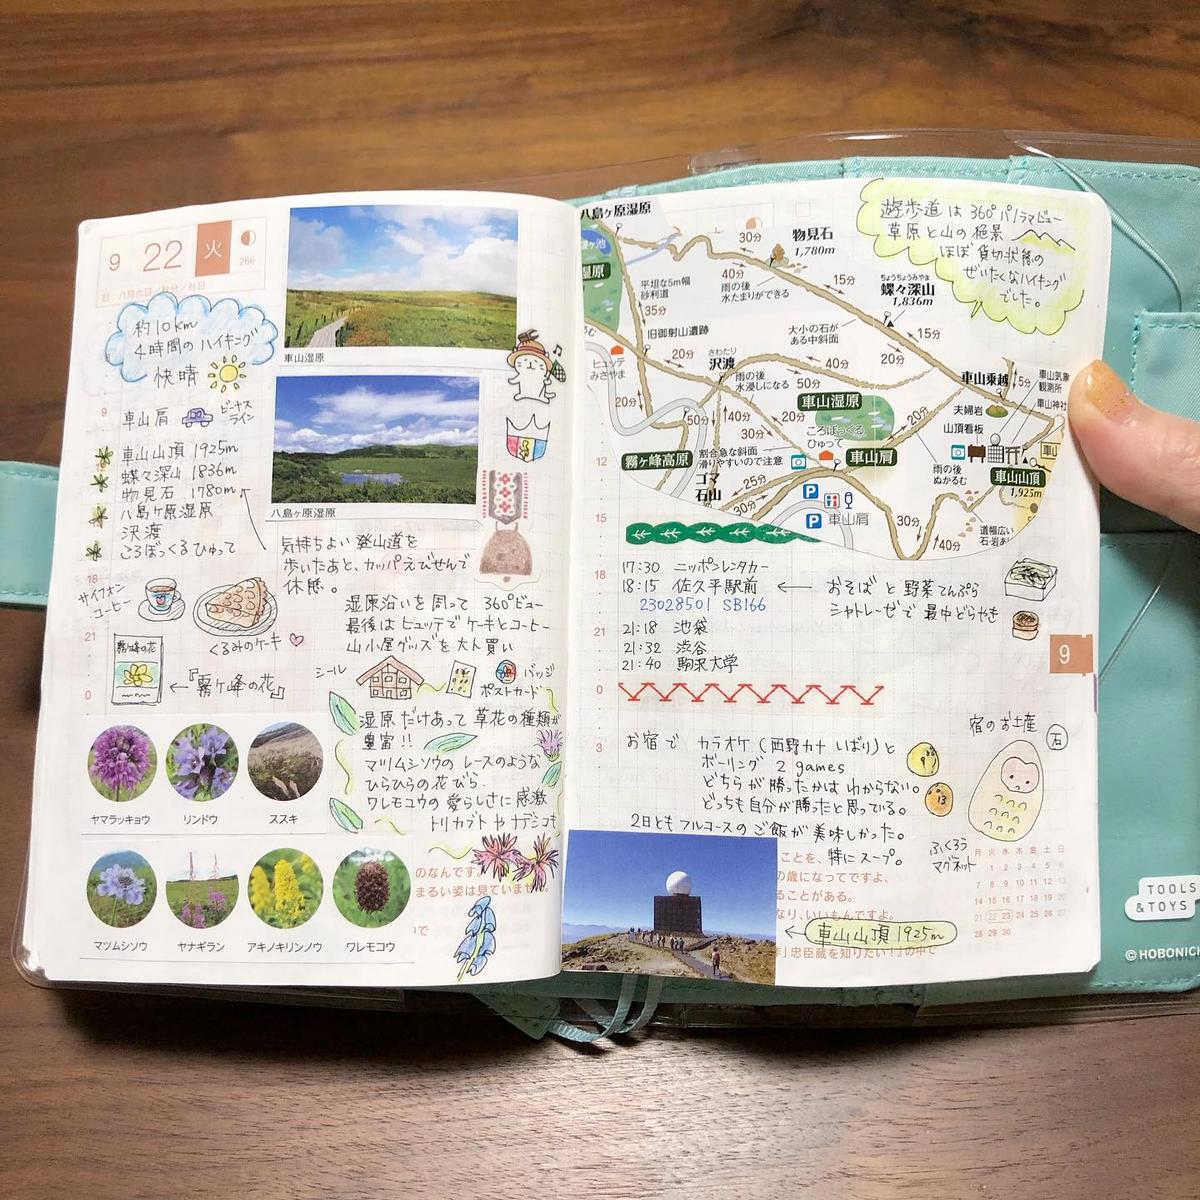 9 22 火
266
旧：八月六日／秋分／社日
約10km
4時間のハイキング
快晴
車山肩
ビーナス
ライン
車山山頂 1925m
蝶々深山 1836m
物見石 1780m
八島ヶ原湿原
沢渡
ころぼっくるひゅって
車山湿原
八島ヶ原湿原
気持ちよい登山道を
歩いたあと、カッパえびせんで
休憩。
湿原沿いを周って 360°ビュー
最後はヒュッテでケーキとコーヒー
山小屋グッズを大人買い
サイフォン
コーヒー
くるみのケーキ
霧ヶ峰の花
←『霧ヶ峰の花』
シール
バッジ
ポストカード
湿原だけあって 草花の種類が
豊富!!
マツムシソウのレースのような
ひらひらの花びら。
ワレモコウの愛らしさに感激
トリカブトやナデシコも
ヤマラッキョウ
リンドウ
ススキ
マツムシソウ
ヤナギラン
アキノキリンソウ
ワレモコウ
のなんです。
まるい姿は見ていませ
9
12
15
18
21
0
3
八島ヶ原湿原
湿原
30分
物見石
1,780m
平坦な5m幅
砂利道
35分
40分
雨の後
水たまりができる
15分
ちょうちょうみやま
蝶々深山
1,836m
旧御射山遺跡
大小の石が
ある中斜面
15分
ヒュッテ
みさやま
20分
20分
さわたり
沢渡
20分
40分
50分
雨の後
水浸しになる
車山乗越
5分
車山気象
観測所
車山神社
20分
50分
40分
30分
車山湿原
ころぼっくる
ひゅって
20分
夫婦岩
山頂看板
霧ヶ峰高原
割合急な斜面
滑りやすいので注意
車山肩
雨の後
ぬかるむ
車山山頂
1,925m
ゴマ
石山
25分
30分
P
P
車山肩
30分
40分
道幅広い
遊歩道は360°パノラマビュー
草原と山の絶景
ほぼ貸切状態の
ぜいたくなハイキング
でした。
17:30 ニッポンレンタカー
18:15 佐久平駅前 ←
23028501 SB166
おそばと野菜てんぷら
シャトレーゼで最中どらやき
21:18 池袋
21:32 渋谷
21:40 駒沢大学
9
お宿で カラオケ（西野カナしばり）と
ボーリング 2 games
どちらが勝ったかはわからない。
どっちも自分が勝ったと思っている。
2日ともフルコースのご飯が美味しかった。
特にスープ。
宿のお土産
石
ふくろう
マグネット
13
ことを、
の歳になってですよ、
ることがある。
なり、いいもんですよ。
←車山山頂 1925m
忠臣蔵を知りたい！』の中で
月 火 水 木 金 土 日
1 2 3 4 5 6
7 8 9 10 11 12 13
14 15 16 17 18 19 20
21 22 23 24 25 26 27
28 29 30
TOOLS
&TOYS
©HOBONICH